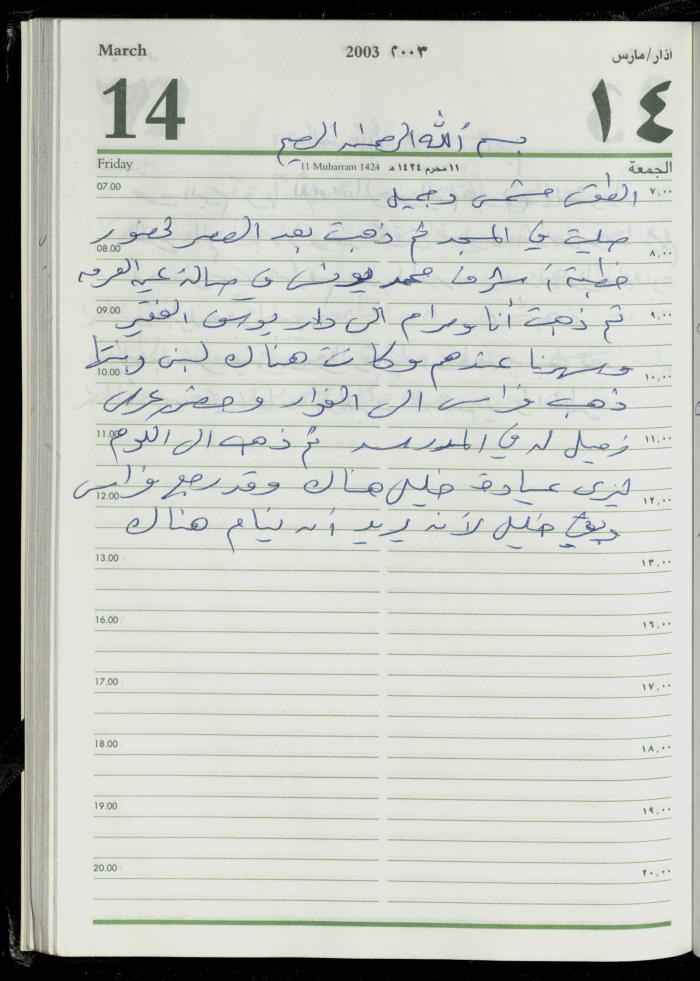 March 2003 ٢٠٠٣ آذار/مارس
14 ١٤
بسم الله الرحمن الرحيم
Friday 11 Muharram 1424 ١١ محرم ١٤٢٤ هـ الجمعة
07.00 الطقس مشمس وجميل ٧,٠٠
صليت في المسجد ثم ذهبت بعد العصر لحضور
08.00 ٨,٠٠
خطبة أشرف محمد يونس في صالة
09.00 ثم ذهبت أنا ومرام الى دار يوسف الفقير ٩,٠٠
وسهرنا عندهم وكانت هناك لبنى وبنتها
10.00 ١٠,٠٠
ذهب فراس الى الفوار وحضر عرس
11.00 زميل له في المدرسة ثم ذهب الى الكوم ١١,٠٠
ليرى عيادة خليل هناك وقد رجع فراس
12.00 ١٢,٠٠
وبقي خليل لأنه يريد أن ينام هناك
13.00 ١٣,٠٠
16.00 ١٦,٠٠
17.00 ١٧,٠٠
18.00 ١٨,٠٠
19.00 ١٩,٠٠
20.00 ٢٠,٠٠